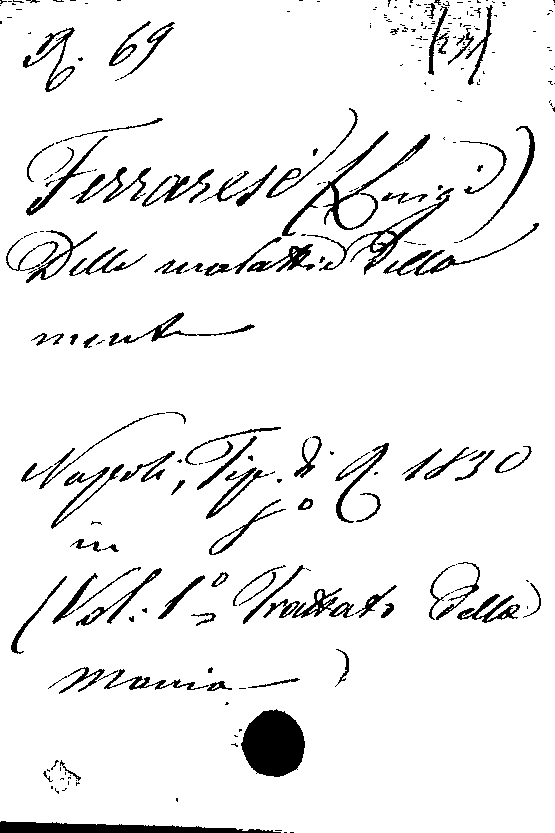 R. 69 (23)
Ferrarese (Luigi)
Delle malattie della
mente
Napoli, Tip. di R. 1830
in 8º
(Vol: 1º Trattato della
mania)